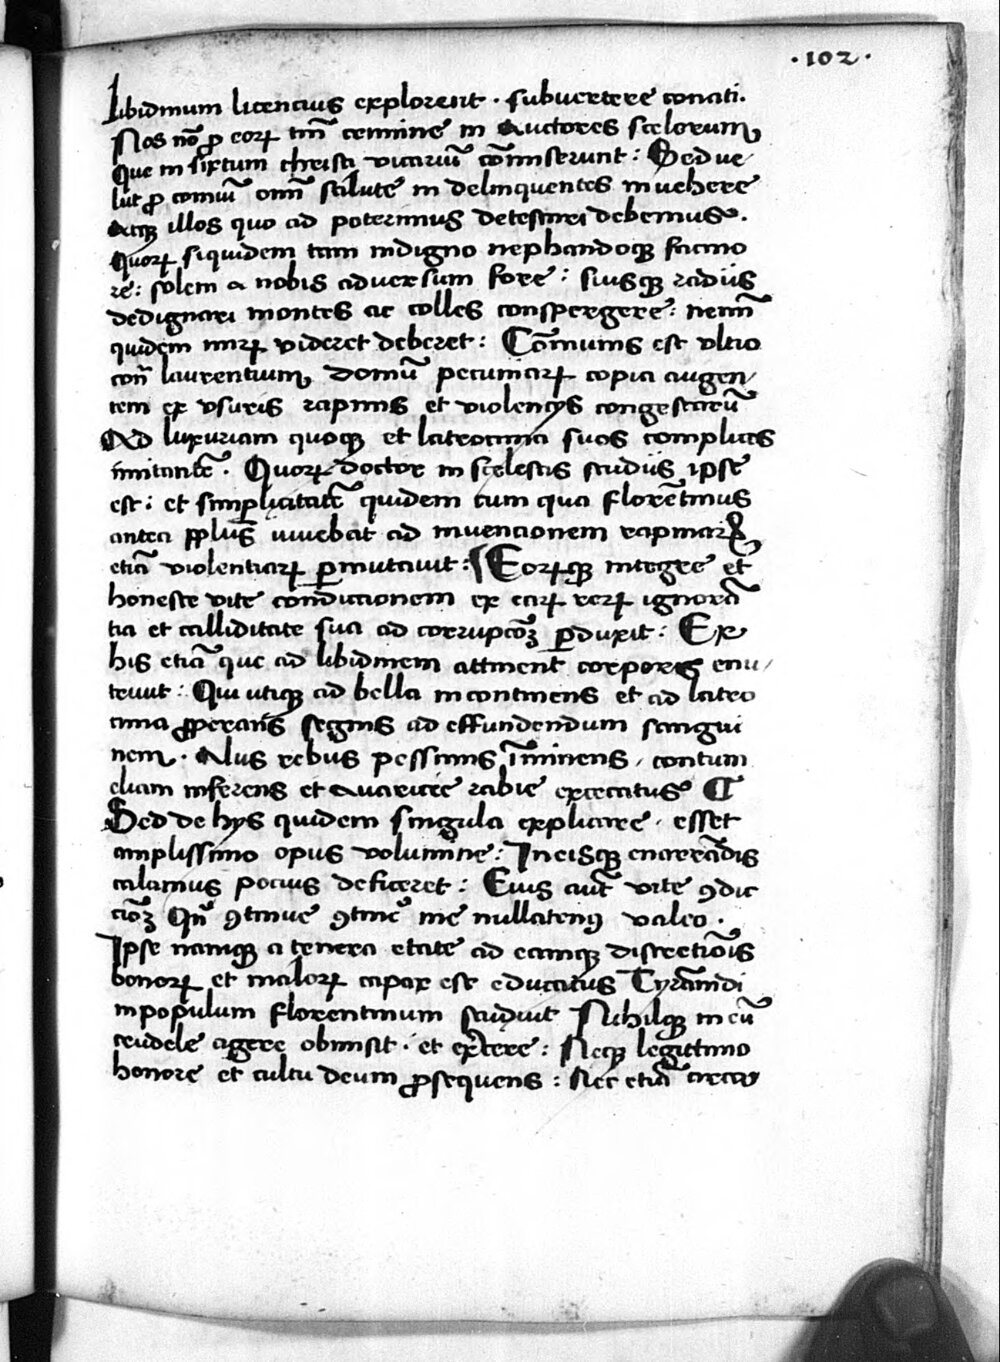 · 102 ·
Libidinum licencius explorent · subvertere conati.
Nos nō ꝓ eoꝝ tm̄ cemine in Auctores scelorum
Que in sixtum christi vicariū cōmiserunt : Sed ve/
lut ꝓ comuī om̄ salute in delinquentes invehere
Atqꝫ illos quo ad poterimus detestari debemus.
Quoꝝ siquidem tam indigno nephandoqꝫ facino
re : solem a nobis adversum fore : suisqꝫ radiis
dedignari montes ac colles conspergere : nemī
quidem mirꝝ videret deberet : Cōmunis est ultio
con̄ laurentium domū pecuniaꝝ copia augen/
tem ex usuris rapinis et violencijs congestarū
Ad luxuriam quoqꝫ et latrocinia suos complices
imitantē · Quoꝝ doctor in scelestis studiis ipse
est : et simplicitatē quidem cum qua florētinus
antea pp̄lus vivebat ad invencionem rapinaꝝ
etiā violentiaꝝ ꝑmutavit : Eoꝝqꝫ integre et
honeste vite condicionem ex eaꝝ reꝝ ignorā
tia et calliditate sua ad corrupcōꝫ ꝑduxit : Ex
his etiā que ad libidinem attinent corpore enu/
trivit : Qui utiqꝫ ad bella incontinens et ad latro
cinia ꝓperans segnis ad effundendum sangui
nem · Alijs rebus pessimis īminens, contum
eliam inferens et avaricie rabie excecatus
Sed de hijs quidem singula explicare · esset
amplissimo opus volumine : In eisqꝫ enarrādis
calamus pocius deficeret : Eius aut̄ vite ꝯdic
ciōꝫ Qn̄ ꝯtinue ꝯtinere nullatenꝰ valeo ·
Ipse namqꝫ a tenera etate ad eamqꝫ discrectiōis
bonoꝝ et maloꝝ capax est educatus Tyrāndi
in populum florentinum studuit Nihilqꝫ in eū
crudele agere obmisit · et ex̄cere : Neqꝫ legittimo
honore et cultu deum ꝓsequens : Nec etiā circa